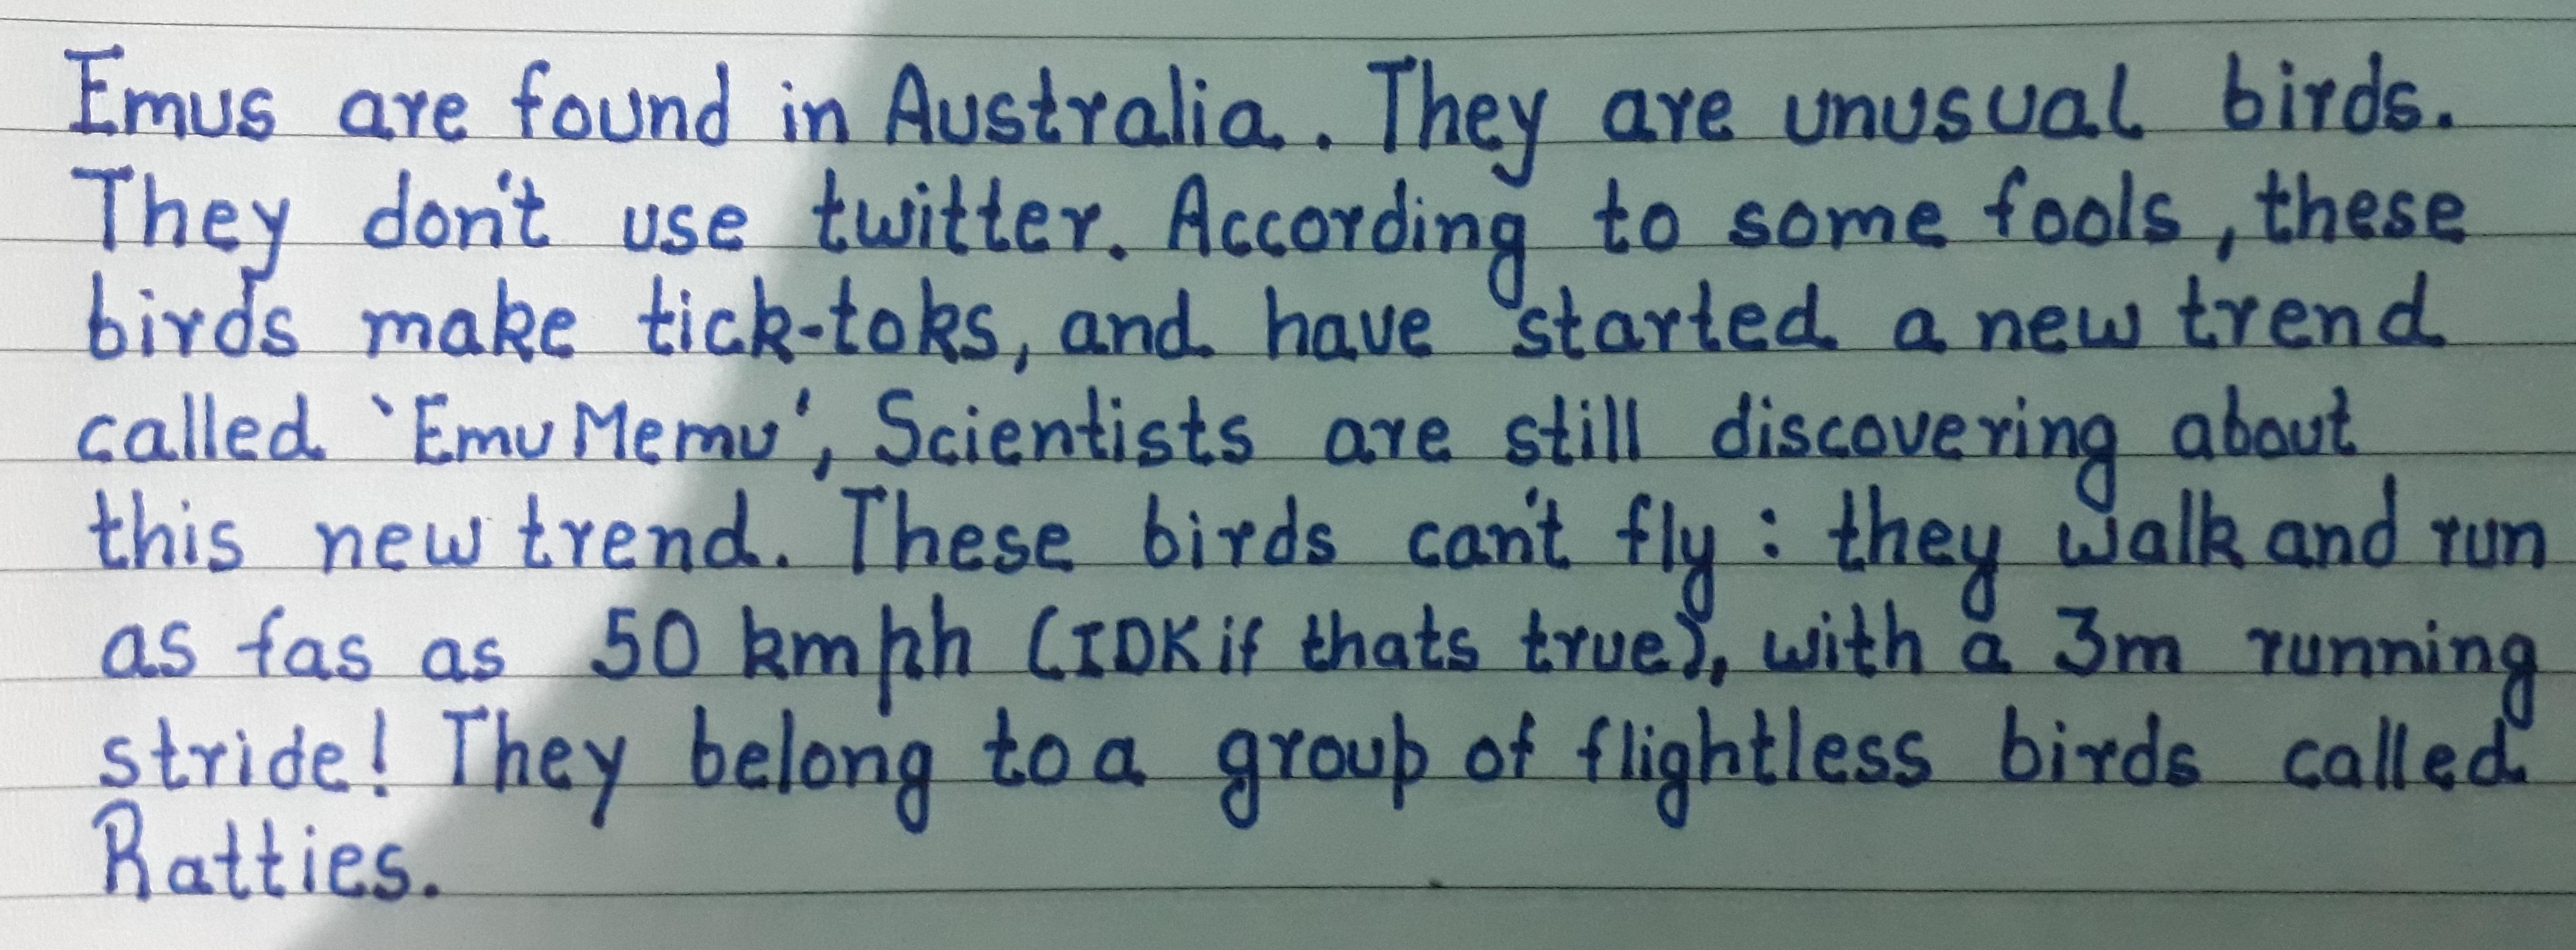 Emus are found in Australia. They are unusual birds.
They don't use twitter. According to some fools, these
birds make tick-toks, and have started a new trend
called 'Emu Memu', Scientists are still discovering about
this new trend. These birds can't fly : they walk and run
as fas as 50 kmph (IDK if thats true), with a 3m running
stride! They belong to a group of flightless birds called
Ratties.